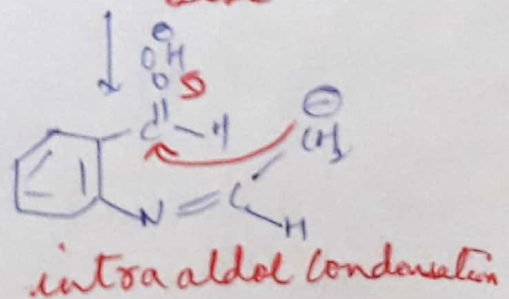 ⊖
OH
O
C - H
⊖
CH₂
N = C
H
intra aldol condensation